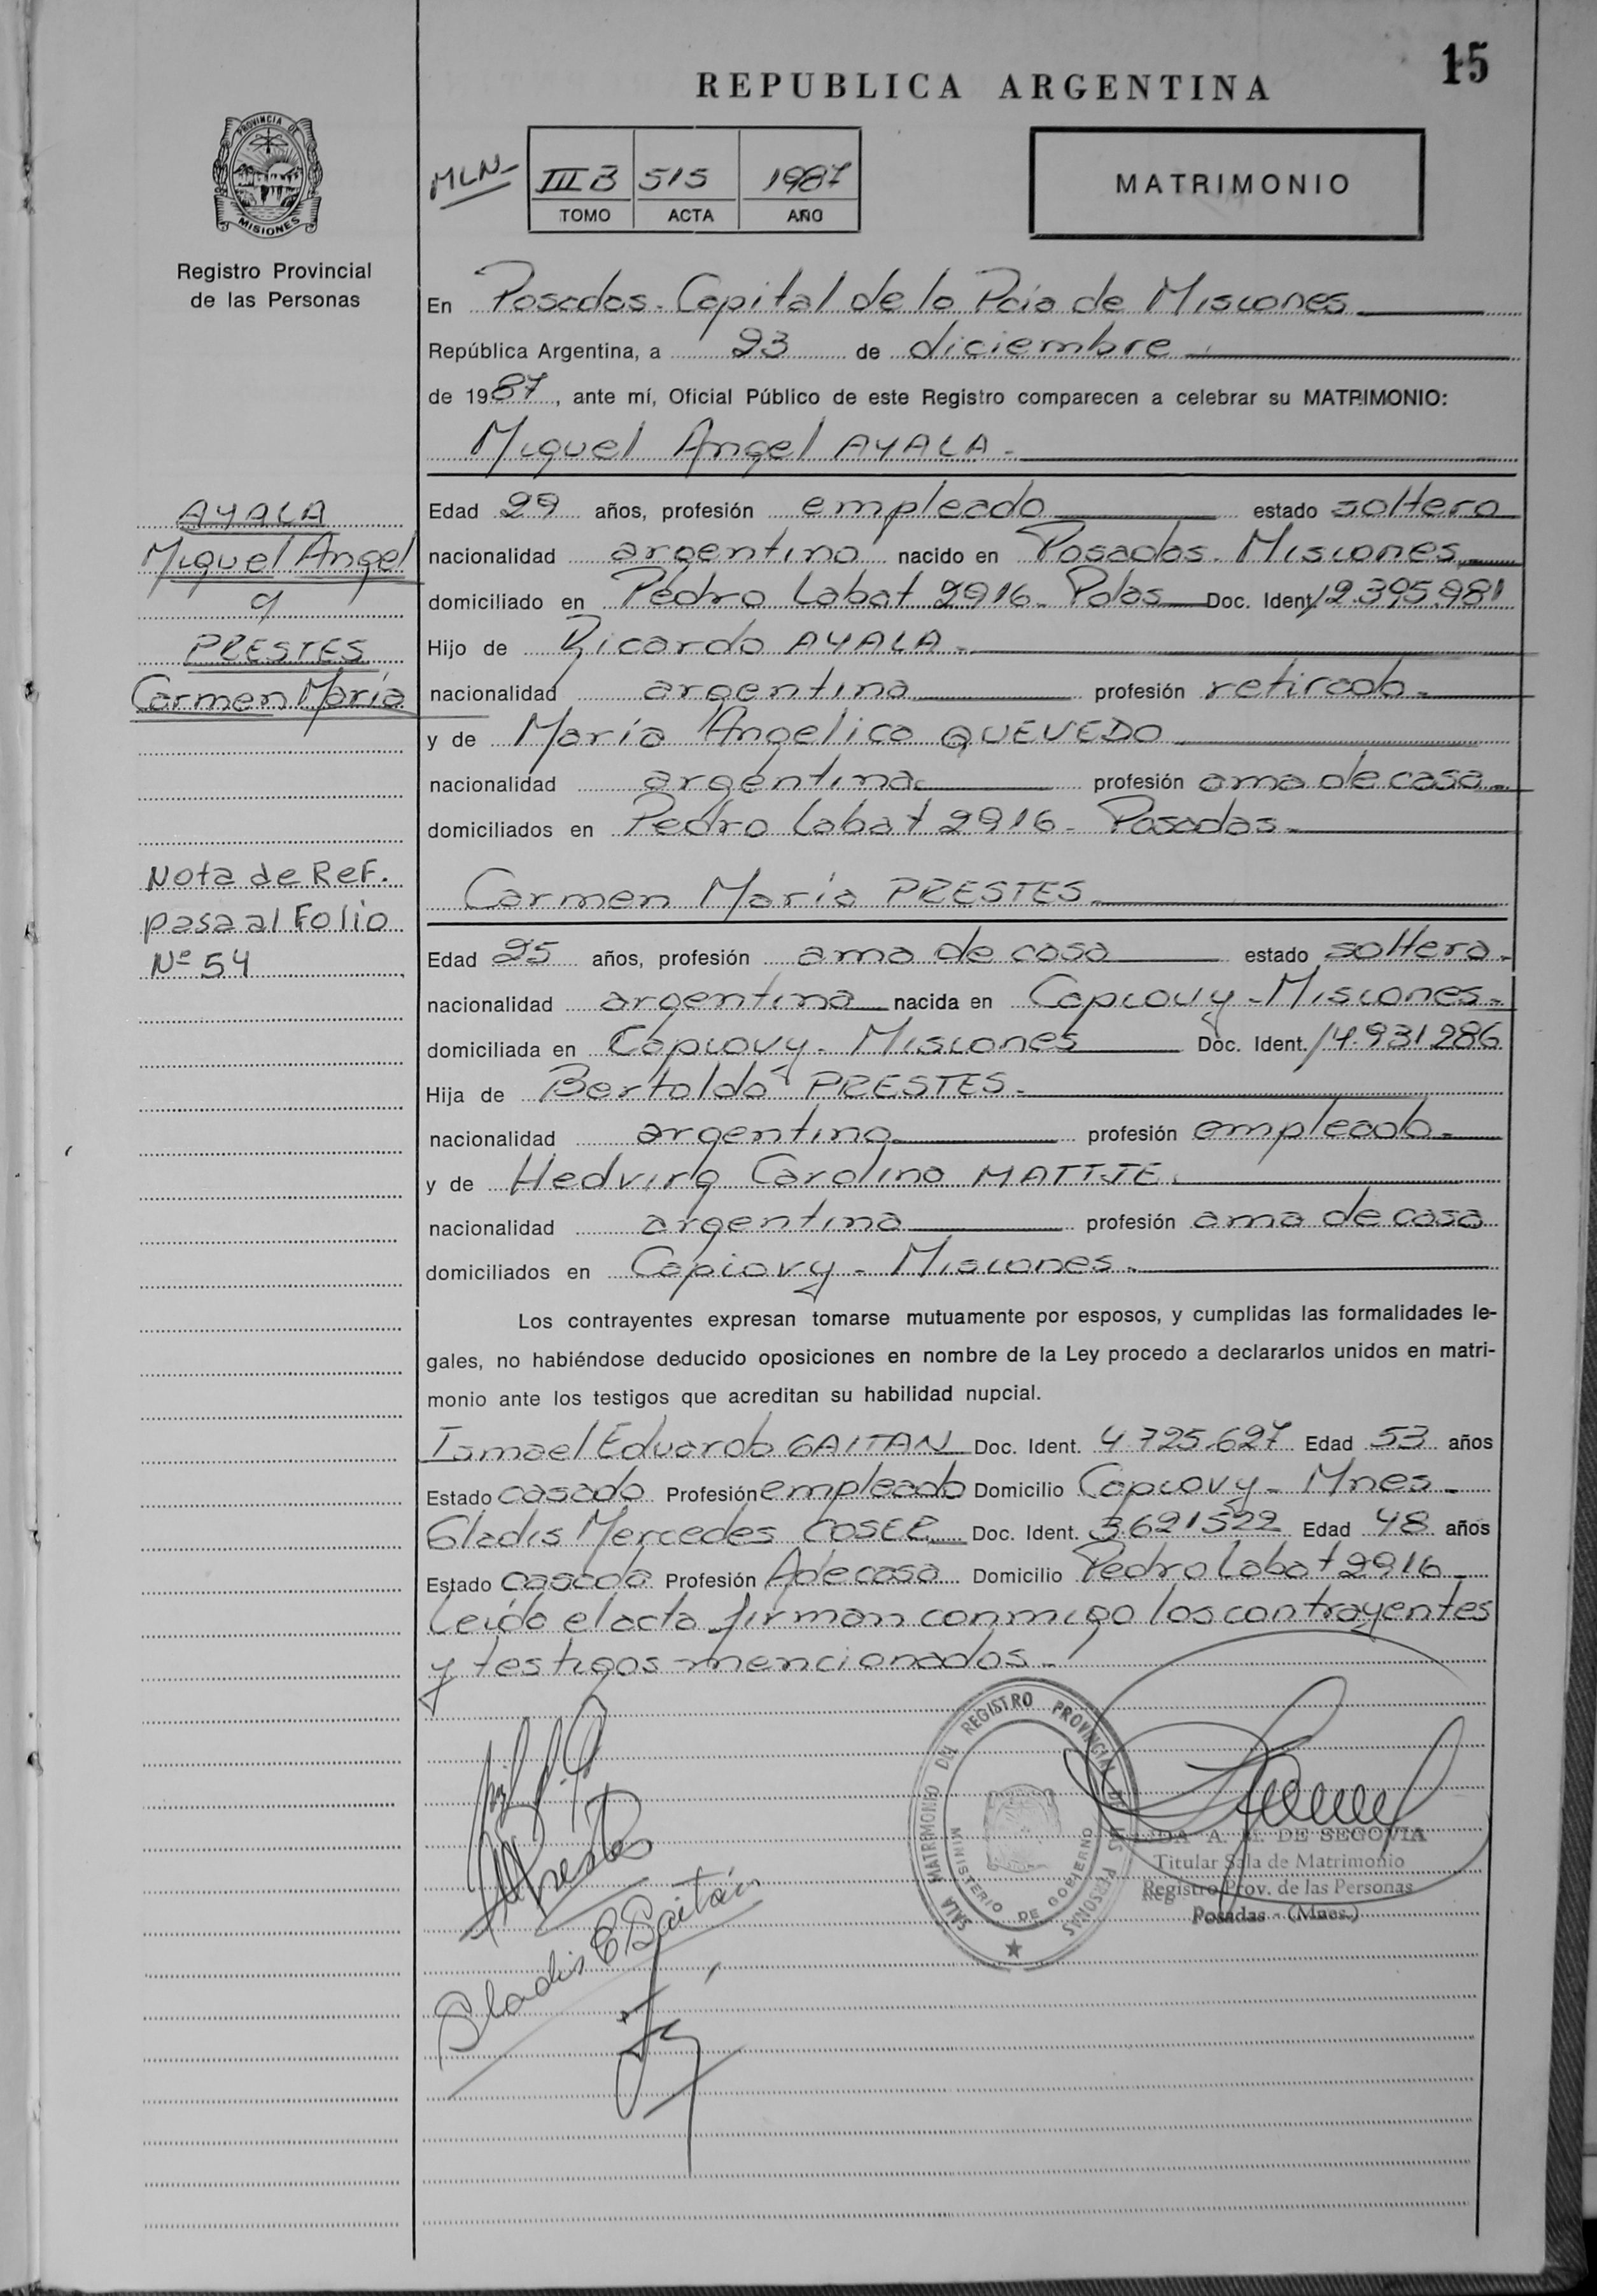 15
REPUBLICA ARGENTINA
PROVINCIA DE
MISIONES
Registro Provincial
de las Personas
MLN-
III B 515 1987
TOMO ACTA AÑO
MATRIMONIO
En Posadas - Capital de la Pcia de Misiones
República Argentina, a 23 de diciembre
de 1987, ante mí, Oficial Público de este Registro comparecen a celebrar su MATRIMONIO:
Miguel Angel AYALA.-
AYALA
Miguel Angel
y
PRESTES
Carmen María
Edad 29 años, profesión empleado estado soltero
nacionalidad argentino nacido en Posadas. Misiones
domiciliado en Pedro Labat 2916 - Pdas Doc. Ident. 12.395.981
Hijo de Ricardo AYALA.-
nacionalidad argentina profesión retirado.-
y de María Angelica QUEVEDO
nacionalidad argentina profesión ama de casa.-
domiciliados en Pedro Labat 2916 - Posadas.-
Nota de Ref.
pasa al Folio
Nº 54
Carmen María PRESTES.-
Edad 25 años, profesión ama de casa estado soltera.-
nacionalidad argentina nacida en Capiovy - Misiones.-
domiciliada en Capiovy - Misiones Doc. Ident. 14.931.286
Hija de Bertoldo PRESTES.-
nacionalidad argentino profesión empleado.-
y de Hedvirg Carolina MATTJE.
nacionalidad argentina profesión ama de casa
domiciliados en Capiovy - Misiones.-
Los contrayentes expresan tomarse mutuamente por esposos, y cumplidas las formalidades le-
gales, no habiéndose deducido oposiciones en nombre de la Ley procedo a declararlos unidos en matri-
monio ante los testigos que acreditan su habilidad nupcial.
Ismael Eduardo GAITAN Doc. Ident. 4.725.627 Edad 53 años
Estado casado Profesión empleado Domicilio Capiovy - Mnes.-
Gladis Mercedes Doc. Ident. 3.621522 Edad 48 años
Estado casada Profesión A de casa Domicilio Pedro Labat 2916
Leída el acta firman conmigo los contrayentes
y testigos mencionados.-
SALA MATRIMONIO DEL REGISTRO PROVINCIAL DE LAS PERSONAS
MINISTERIO DE GOBIERNO
Prestes
Gladis E Gaitán
DA A. DE SEGOVIA
Titular Sala de Matrimonio
Registro Prov. de las Personas
Posadas - (Mnes.)